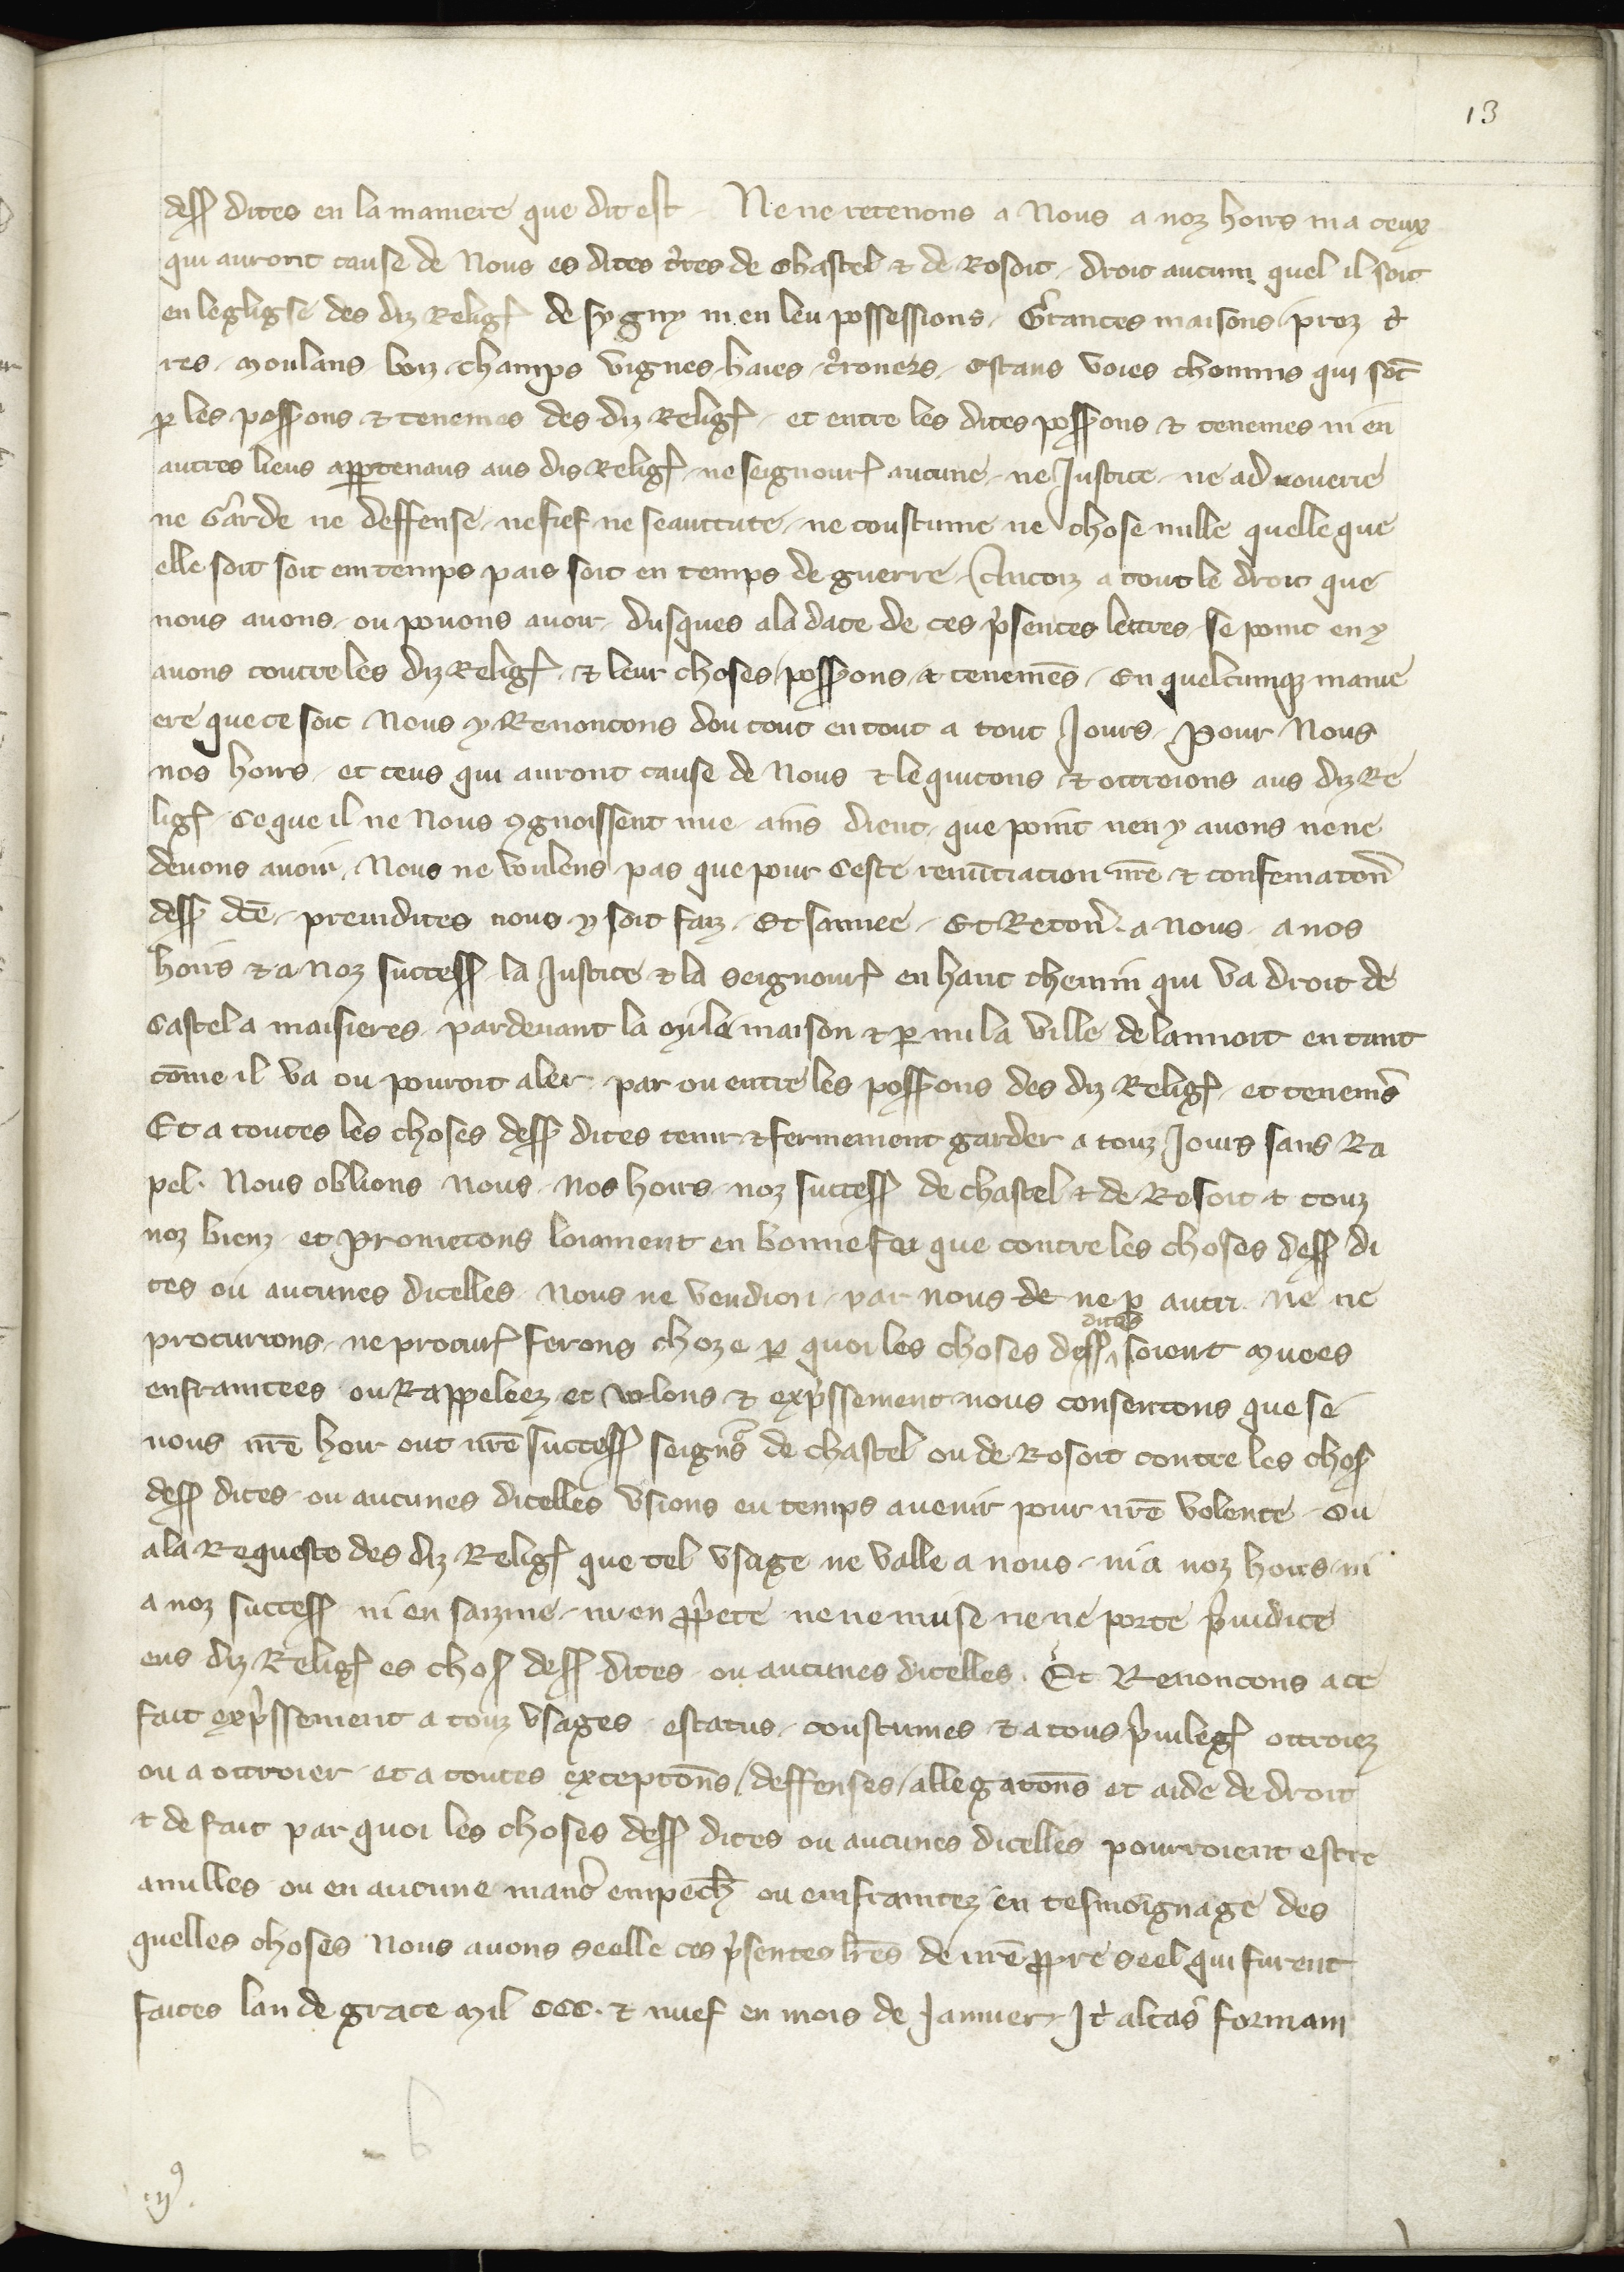 13
dess dites en la maniere que dit est Ne ne retenons a Nous a noz hoirs ni a ceux
qui auront cause de Nous es dites t'res de Chastel & de Rosoit droit aucun quel il soit
en leglise des diz Relig de sygny ni en leu possessions Grances maisons proz t'
res moulans boiz champs vignes haies estans voies chemins qui sōt
p les possons & tenemes des diz Relig et entre les dites possons & tenemes ni en
autres lieus appertenans aus dis Relig ne seignour aucune ne Justice ne ad
ne Garde ne deffense ne fief ne ne coustume ne chose nulle quelle que
elle soit soit em temps pais soit en temps de guerre Ancoiz a tout le droit que
nous avons ou povons avoir dusques a la date de ces p'sentes lettres se point en y
avons contre les diz Relig & leur choses possons & tenemēs En quelcumq manie
ere que ce soit Nous y Renoncons dou tout en tout a tout Jours pour Nous
nos hoirs et ceus qui auront cause de Nous & le quitons & ottroions aus diz Re
lig Ce que il ne Nous 9gnoissent mie ains dient que point nen y avons ne ne
devons avoir Nous ne voulens pas que pour Ceste renūciacion nr̄e & confermaton
dess dc̄e preiudices nous y soit faiz Et saunee Et Reton a Nous a nos
hoirs & a Noz success la Justice & la seignour en haut chemin qui va droit de
Castel a maisieres par devant la maison & p mi la ville de lannoit en tant
cōme il va ou pouroit aler par ou entre les possons des diz Relig et tenems
Et a toutes les choses dess dites tenir & fermement garder a touz Jours sans Ra
pel. Nous oblions Nous Nos hoirs noz success de chastel & de Rosoit & touz
noz bienz et prometons loiament en bonne foi que contre les choses dess di
tes ou aucunes dicelles Nous ne vendion par nous de ne p autr Ne ne
procurrons ne procur ferons choze p quoi les choses dess dites soient muees
enfraintees ou Rappeleez et volons & exp'ssement nous consentons que se
nous nr̄e hoir out nr̄e success seigns de chastel ou de Rosoit contre les chos
dess dites ou aucunes dicelles usions en temps avenir pour nr̄e volente ou
a la Requeste des diz Relig que tel usage ne valle a nous ni a noz hoirs ni
a noz success ni en saizine ni en pp'ete ne ne nuise ne ne porte p'iudice
eus diz Relig es chos dess dites ou aucunes dicelles. Et Renoncons a ce
fait exp'ssement a touz usages estatus coustumes & a tous p'iuileg ottroiez
ou a ottroier et a toutes exceptons deffenses allegatons et aide de droit
& de fait par quoi les choses dess dites ou aucunes dicelles pourroient estre
anulles ou en aucune man' empech ou emfraintez en tesmoignage des
quelles choses Nous avons seelle ces p'sentes lr̄es de nr̄e ppre seel qui furent
faites lan de grace mil CCC. & nuef en mois de Janvier It' altas formam
.ij9.